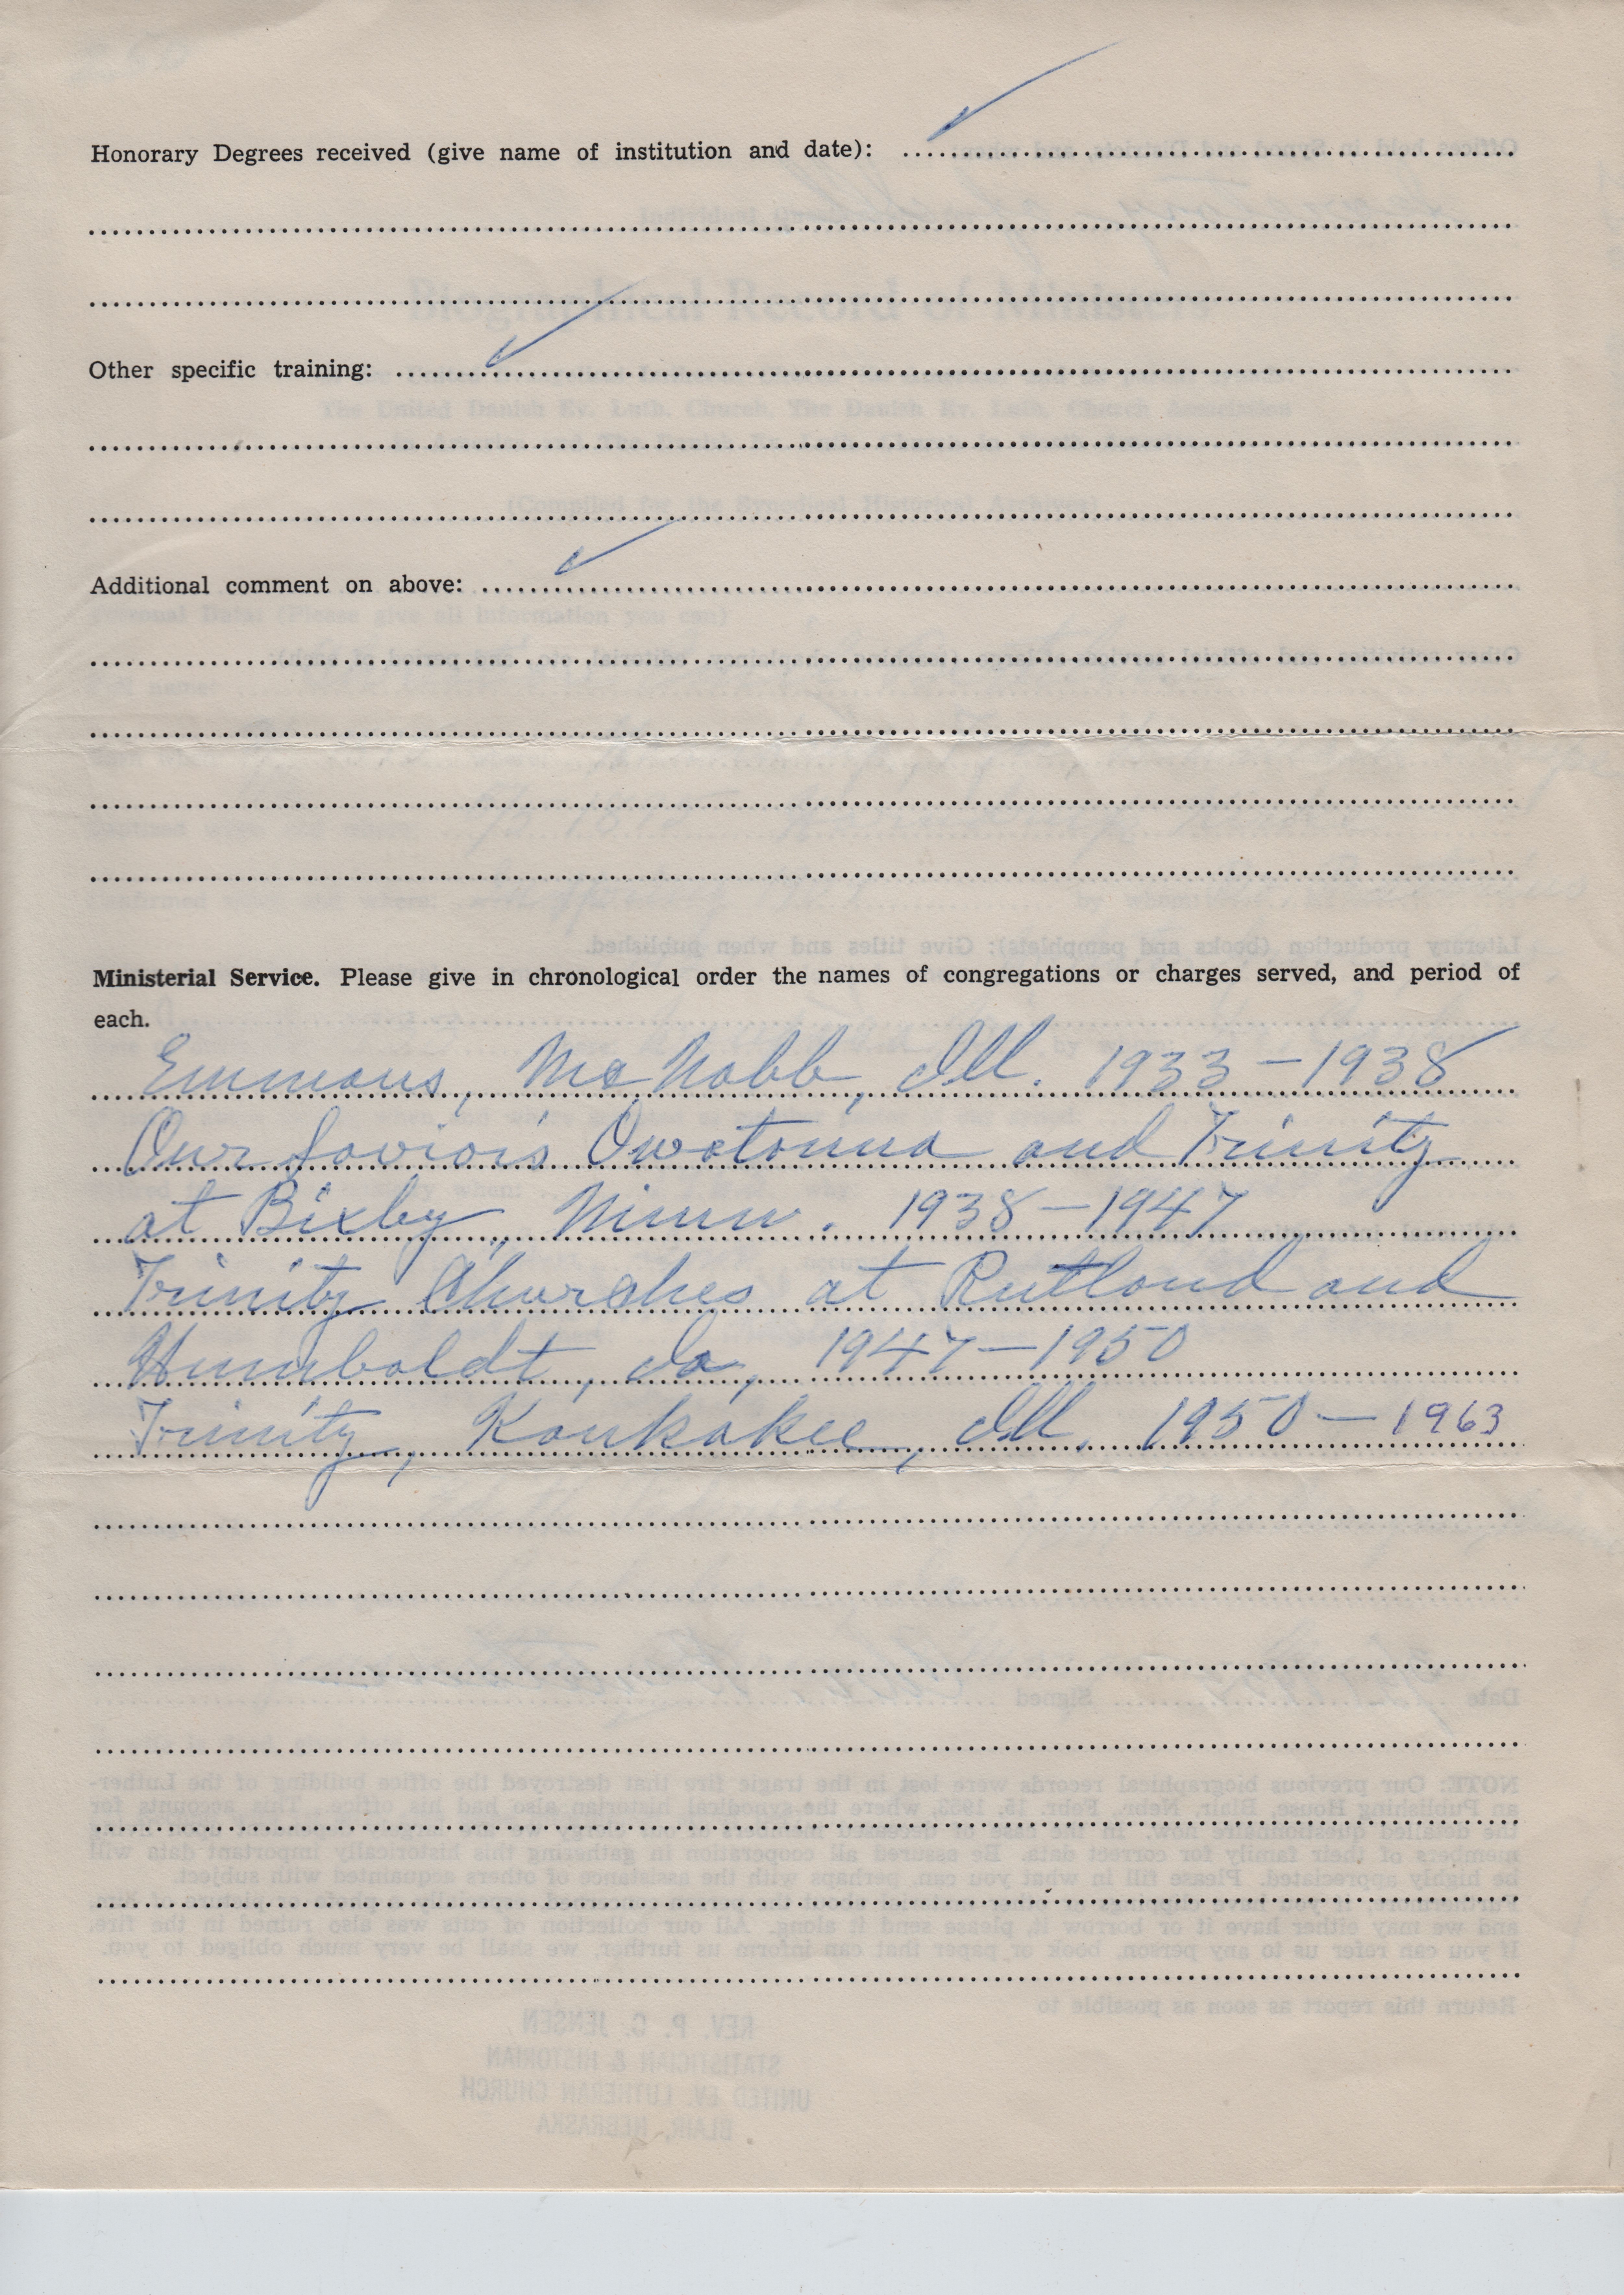 Honorary Degrees received (give name of institution and date):
Other specific training:
Additional comment on above:
Ministerial Service. Please give in chronological order the names of congregations or charges served, and period of
each.
Emmaus, McNabb, Ill. 1933 – 1938
Our Savior's Owatonna and Trinity
at Bixby, Minn. 1938 – 1947
Trinity Churches at Rutland and
Humboldt, Ia, 1947 – 1950
Trinity, Kankakee, Ill. 1950 – 1963